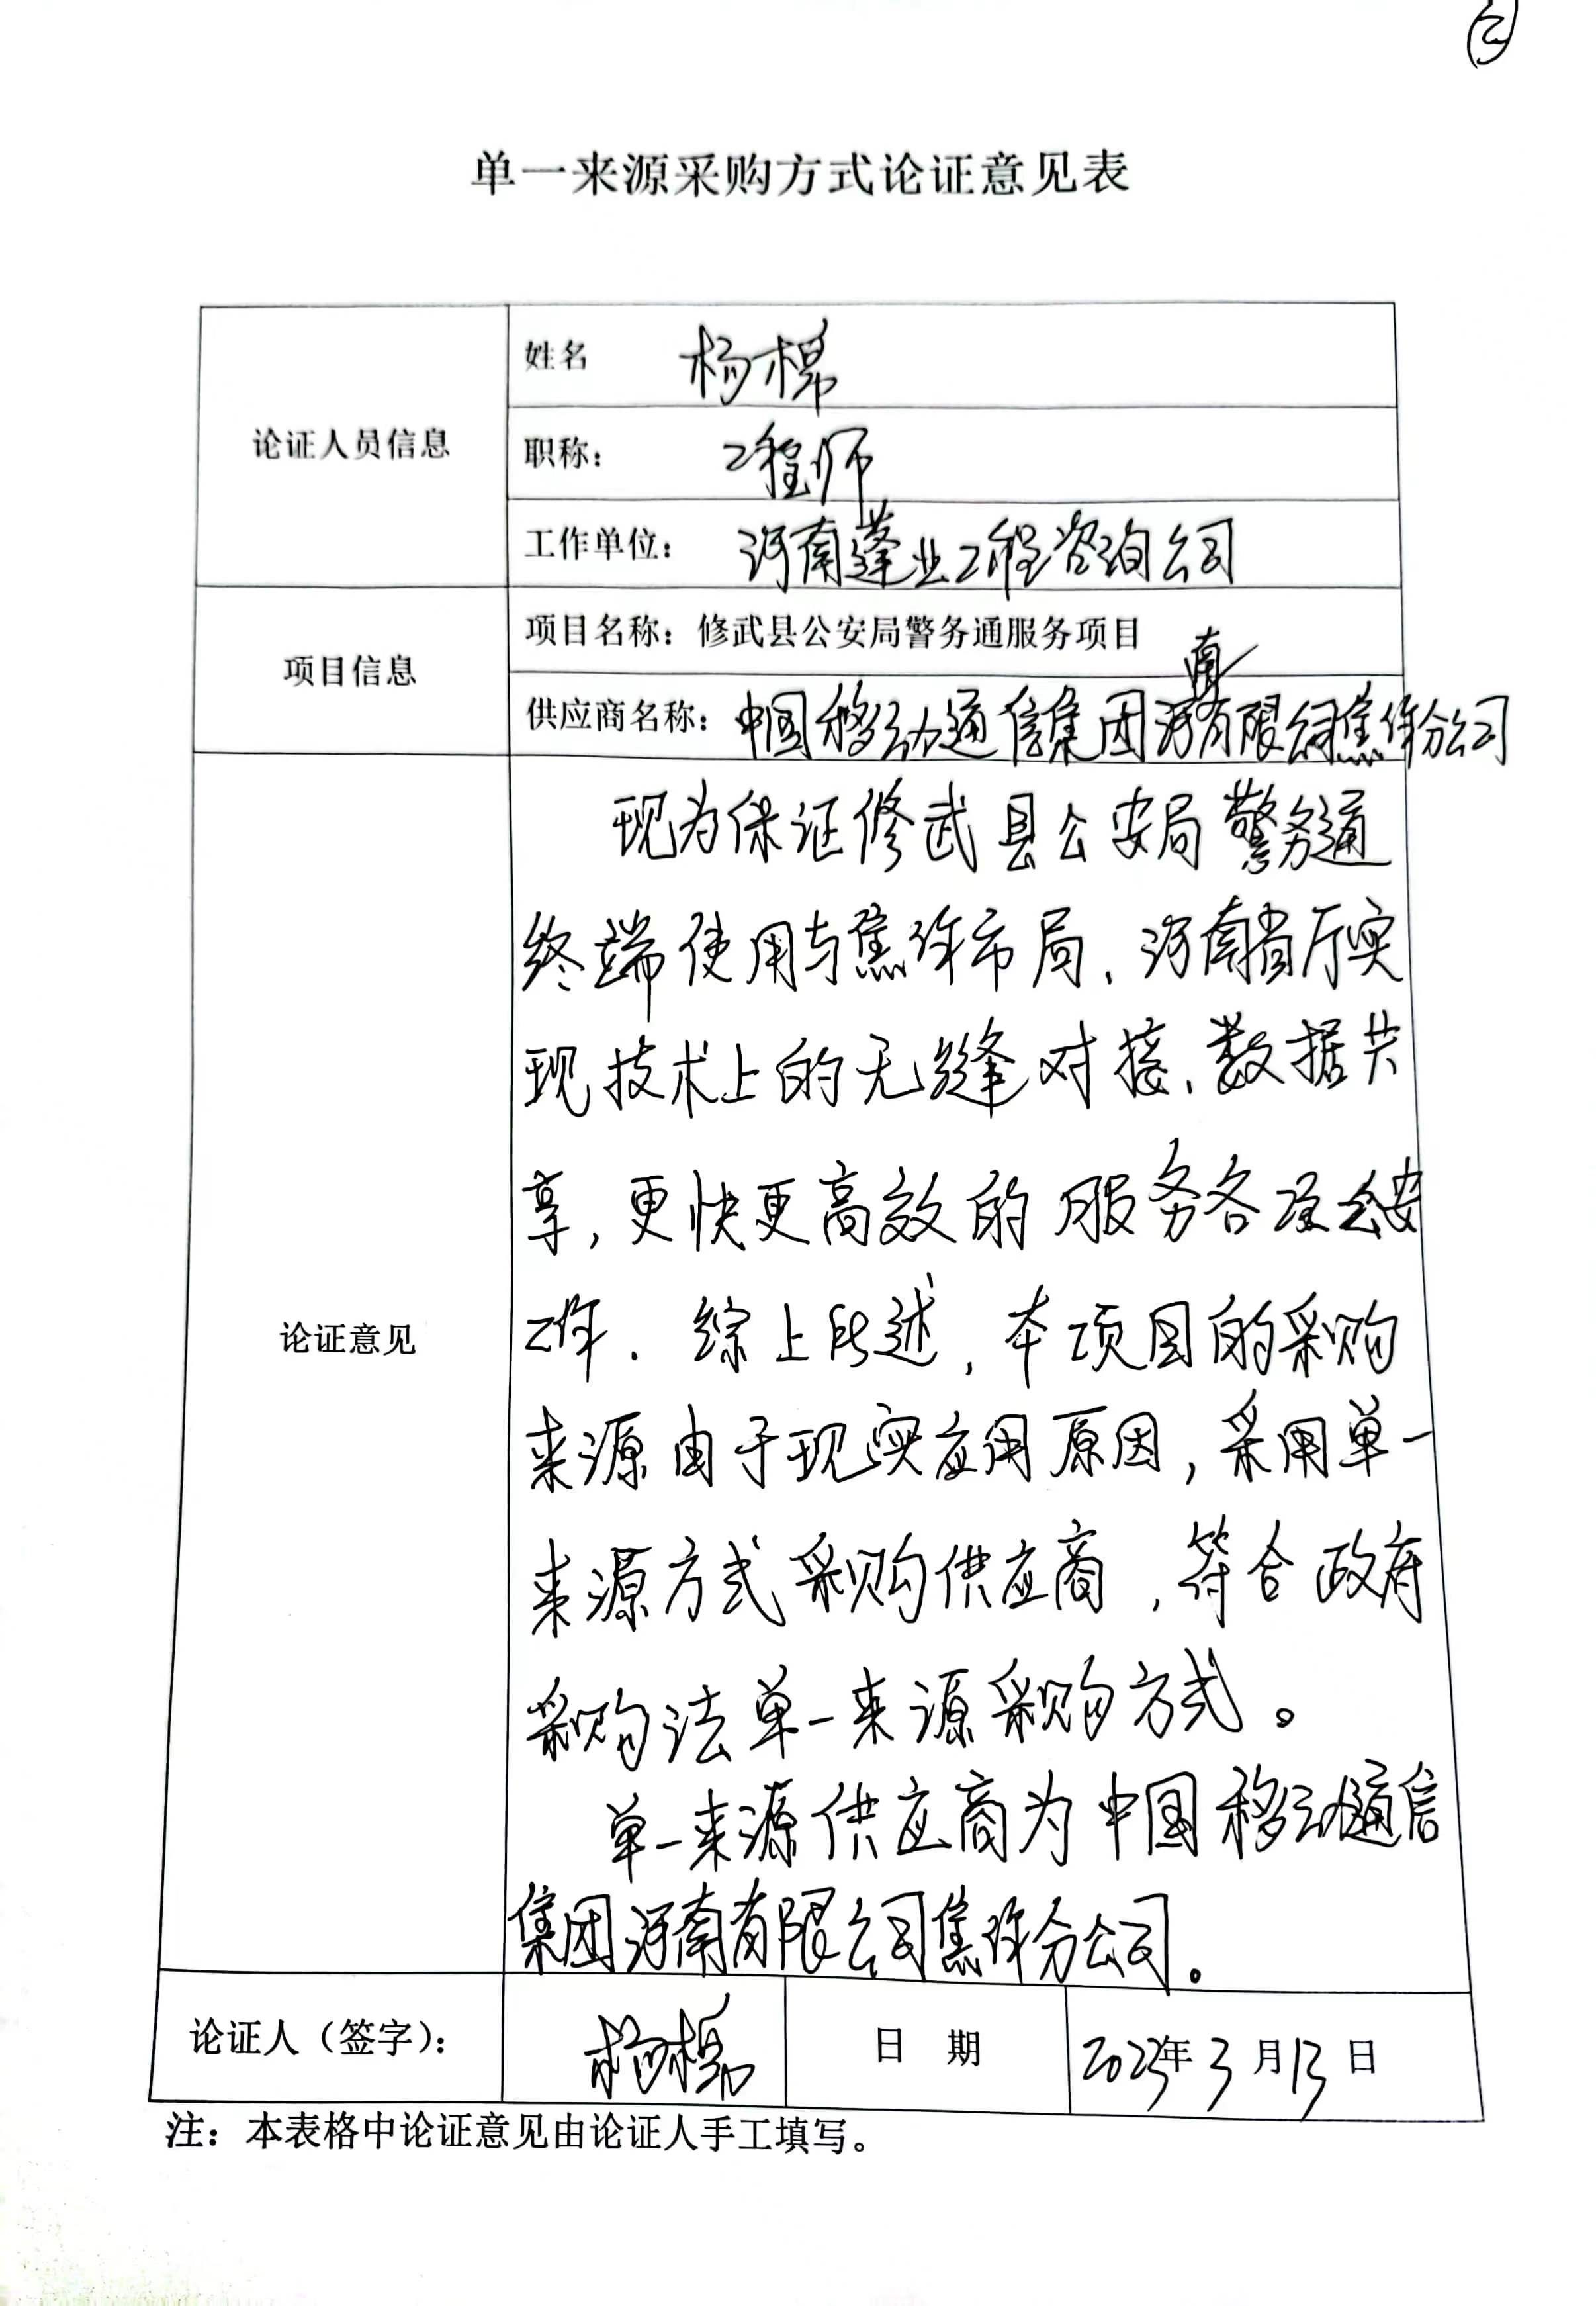 ②
单一来源采购方式论证意见表
论证人员信息
姓名 杨棉
职称： 工程师
工作单位： 河南蓬业工程咨询公司
项目信息
项目名称：修武县公安局警务通服务项目
供应商名称：中国移动通信集团河南有限公司焦作分公司
论证意见
现为保证修武县公安局警务通
终端使用与焦作市局、河南省厅实
现技术上的无缝对接、数据共
享，更快更高效的服务各项公安
工作. 综上所述，本项目的采购
来源由于现实应用原因，采用单一
来源方式采购供应商，符合政府
采购法单一来源采购方式。
单一来源供应商为中国移动通信
集团河南有限公司焦作分公司。
论证人（签字）： 杨棉 日 期 2023年3月13日
注：本表格中论证意见由论证人手工填写。